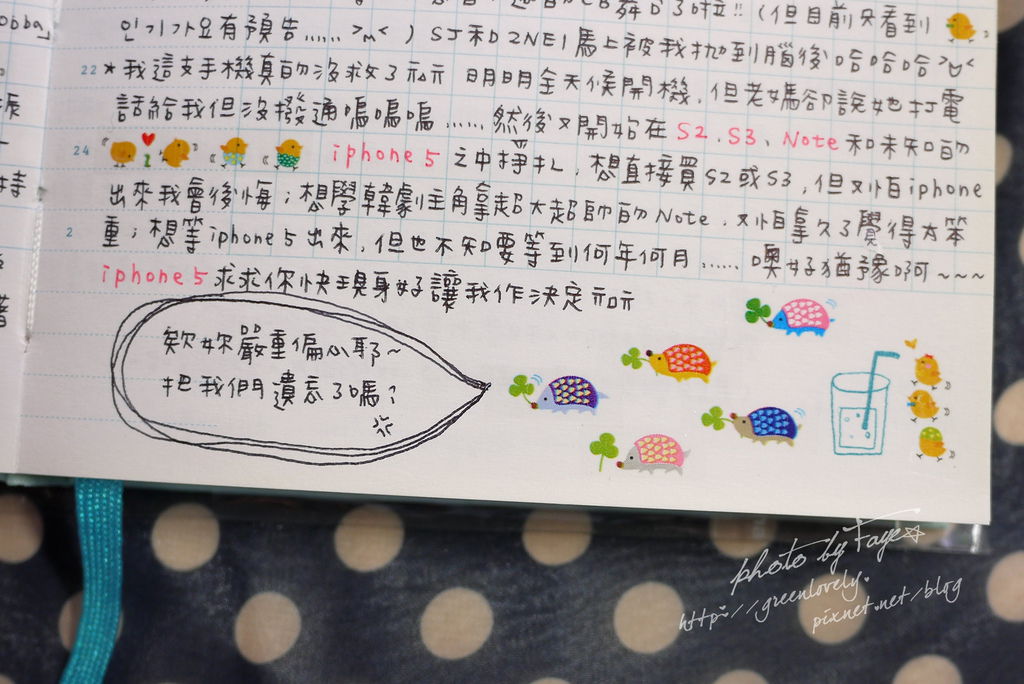 인기가요有預告...... >"< ) SJ和2NE1馬上被我拋到腦後哈哈哈
22 *我這支手機真的沒救了示示 明明全天候開機,但老媽卻說她打電
話給我但沒撥通嗚嗚嗚...... 然後又開始在S2.S3、Note和未知的
24 iphone5之中掙扎,想直接買S2或S3,但又怕iphone
出來我會後悔;想學韓劇主角拿起大超帥的Note,又怕拿久了覺得太笨
2 重;想等iphone5出來,但也不知要等到何年何月...... 噢好猶豫啊~~~
iphone5求求你快現身好讓我作決定示示
欸妳嚴重偏心耶~
把我們遺忘了嗎?
photo by Faye☆
http://greenlovely.
pixnet.net/blog